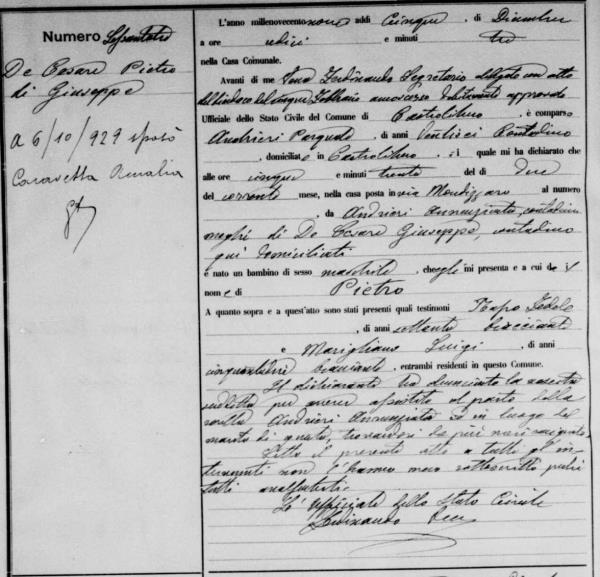 Numero Sessantotto
De Cesare Pietro
di Giuseppe
A 6/10/929 sposò
Caravetta Amalia
L'anno millenovecento nove, addì Cinque, di Dicembre
a ore undici e minuti tre
nella Casa Comunale.
Avanti di me Ferdinando Segretario delegato con atto
del Sindaco del cinque Febbraio anno scorso debitamente approvato
Ufficiale dello Stato Civile del Comune di Castrolibero, è comparso
Andrieri Pasquale, di anni ventisei Contadino
, domiciliato in Castrolibero, il quale mi ha dichiarato che
alle ore cinque e minuti trenta del dì due
del corrente mese, nella casa posta in via al numero
, da Andrieri Annunziata, contadina
moglie di De Cesare Giuseppe, contadino
qui domiciliati
è nato un bambino di sesso maschile, che egli mi presenta e a cui dà il
nome di Pietro
A quanto sopra e a quest'atto sono stati presenti quali testimoni Fedele
, di anni settanta bracciante
e Marigliano Luigi, di anni
bracciante, entrambi residenti in questo Comune.
Il dichiarante ha denunciato la nascita
suddetta per avere assistito al parto della
sorella Andrieri Annunziata e in luogo del
marito di questa, trovandosi da più mesi emigrato.
Letto il presente atto a tutti gl'in-
tervenuti non l'hanno meco sottoscritto perché
tutti analfabeti.
L'Ufficiale dello Stato Civile
Ferdinando